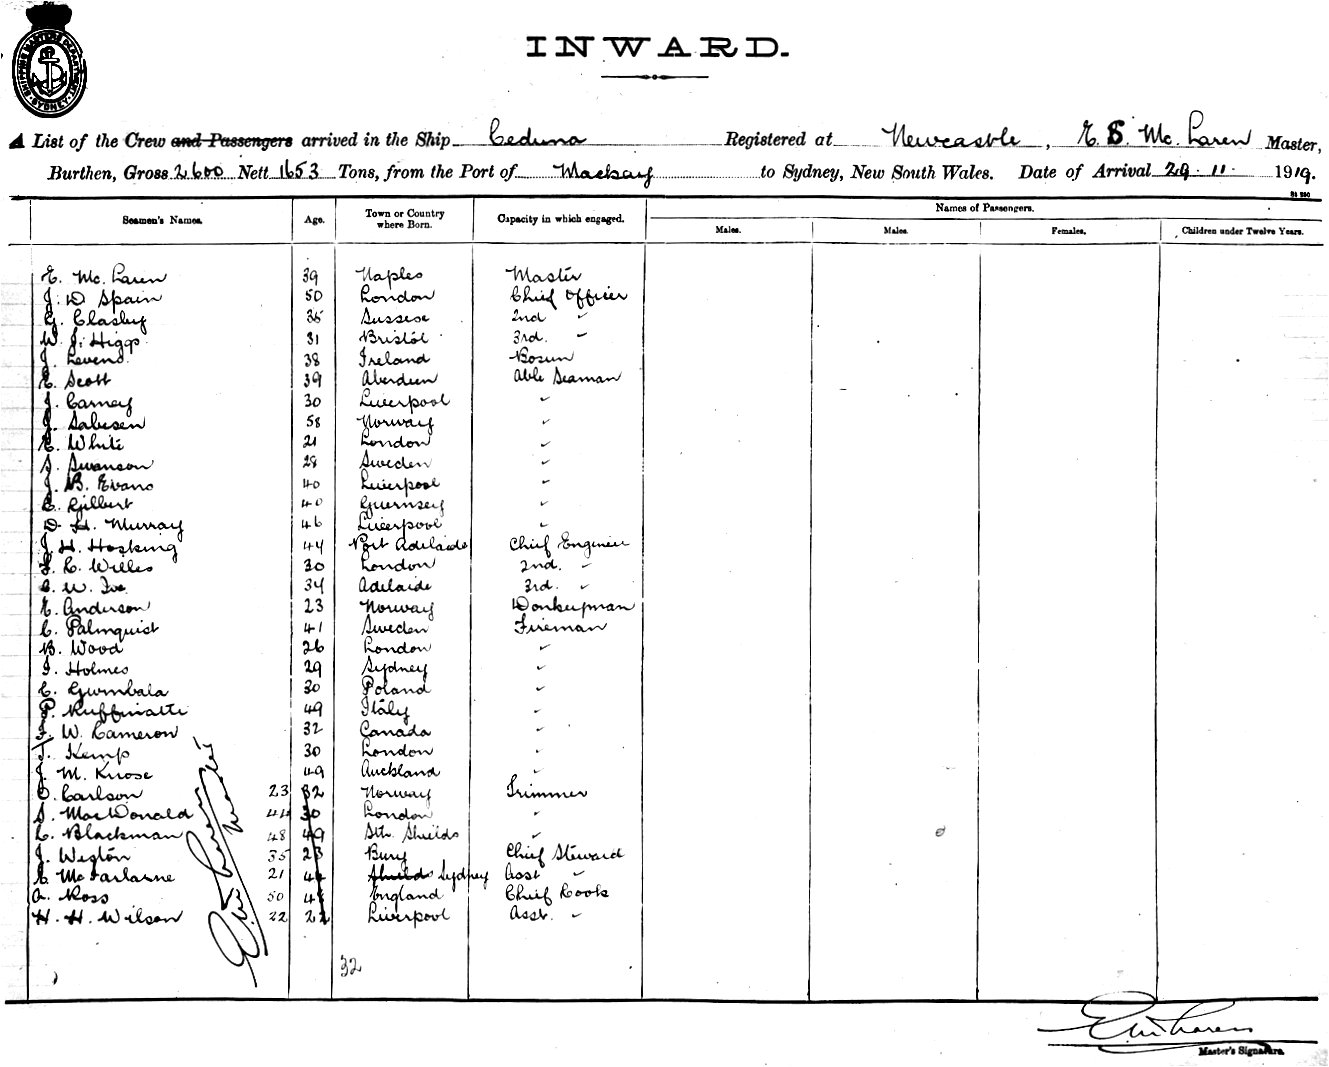 SHIPPING MASTER'S DEPARTMENT SYDNEY
INWARD.
A List of the Crew and Passengers arrived in the Ship Ceduna Registered at Newcastle, E S Mc. Laren Master,
Burthen, Gross 2600 Nett 1653 Tons, from the Port of Mackay to Sydney, New South Wales. Date of Arrival 29. 11. 1919.
Seamen's Names. Age. Town or Country where Born. Capacity in which engaged. Names of Passengers.
Males. Males. Females. Children under Twelve Years.
E. Mc. Laren 39 Naples Master
J. D Spain 50 London Chief Officer
G. Clasby 35 Sussex 2nd "
W. J. Higgs 31 Bristol 3rd. "
J. Levens 38 Ireland Bosun
E. Scott 39 Aberdeen Able Seaman
J. Carney 30 Liverpool "
J. Sabesen 58 Norway "
E. White 21 London "
S. Swanson 28 Sweden "
J. B. Evans 40 Liverpool "
C. Gilbert 40 Guernsey "
D H. Murray 46 Liverpool "
J. H. Hosking 44 Port Adelaide Chief Engineer
F. C. Willes 30 London 2nd. "
C. W. Fox 34 Adelaide 3rd. "
E. Anderson 23 Norway Donkeyman
C. Palmquist 41 Sweden Fireman
B. Wood 26 London "
J. Holmes 29 Sydney "
C. Gwmbala 30 Poland "
P. Ruffinatti 49 Italy "
F. W. Cameron 32 Canada "
T. Kemp 30 London "
J. M. Knose 49 Auckland "
O. Carlson 23 32 Norway Trimmer
S. MacDonald 44 30 London "
C. Blackman 48 49 Sth. Shields "
J. Weston 35 23 Bury Chief Steward
E. McFarlane 21 44 Shields Sydney Asst "
A. Ross 50 48 England Chief Cook
H. H. Wilson 22 22 Liverpool Asst. "
E Mc Laren Master
32
E Mc Laren
Master's Signature.